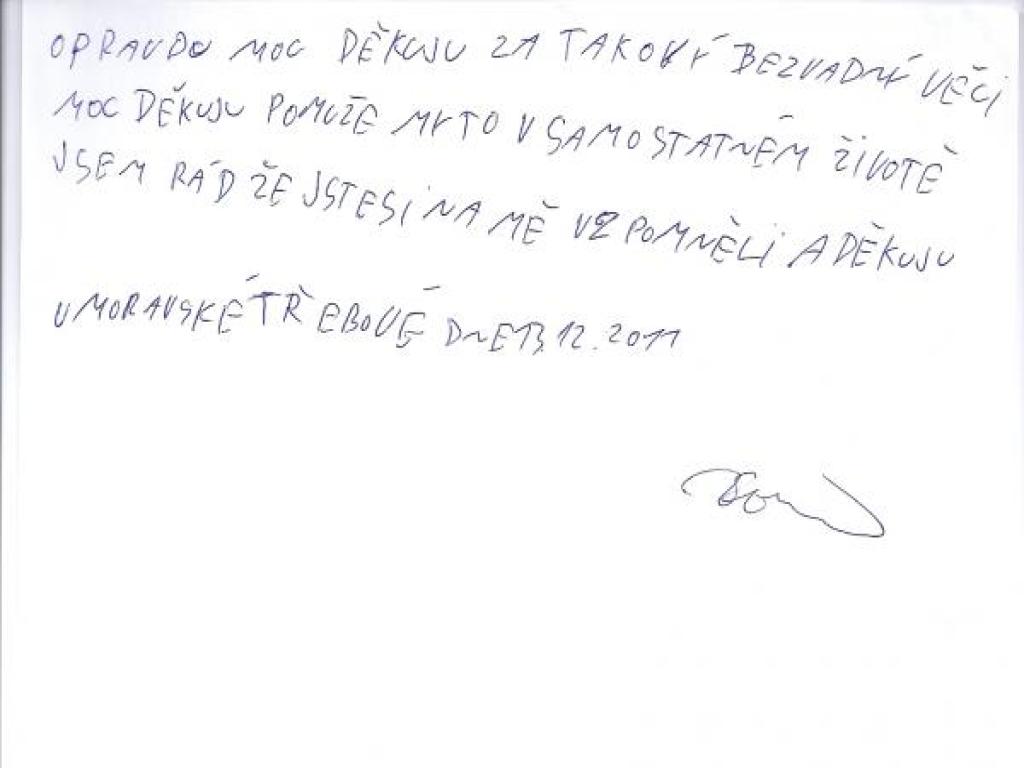 OPRAVDU MOC DĚKUJU ZA TAKOVÝ BEZVADNÝ VĚCI
MOC DĚKUJU POMUŽE MY TO V SAMOSTATNÉM ŽIVOTĚ
JSEM RÁD ŽE JSTE SI NA MĚ VZPOMNĚLI A DĚKUJU
V MORAVSKÉ TŘEBOVÉ DNE 13.12.2011